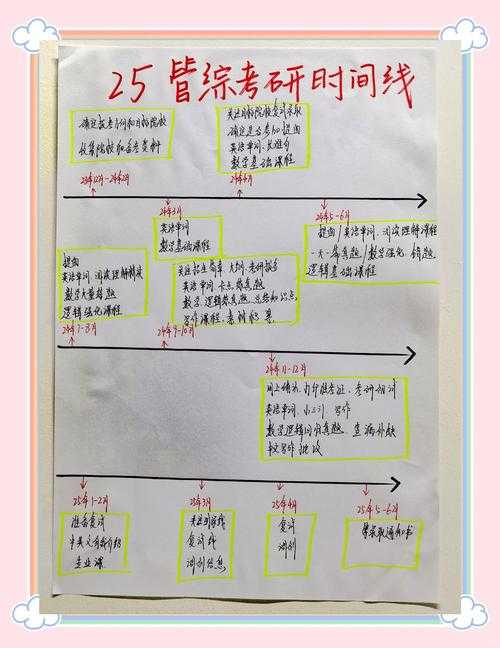 25管综考研时间线
确定报考方向和目标院校
收集院校和备考资料
关注目标院校复试录取
确定是否参加提面
英语单词、长难句
数学基础课程
23年12月-24年2月
24年4月
24年3月
英语单词
数学基础课程
24年5-6月
提面/英语单词、阅读理解课程
数学强化、错题
逻辑基础课程
提面
英语单词、阅读理解精读
数学大量做题
逻辑强化课程
24年7-8月
关注招生简章、大纲、考研报名
英语单词
数学、逻辑做真题、总结知识点
写作课程
24年9-10月
24年11-12月
网上确认、打印准考证、考研初试
英语单词、小作文、写作
数学逻辑回归真题、查漏补缺
中文写作
25年1-2月
准备复试
中英文自我介绍
专业课
25年3月
关注国家线
复试线
调剂信息
25年4月
复试
调剂
25年5-6月
录取通知书